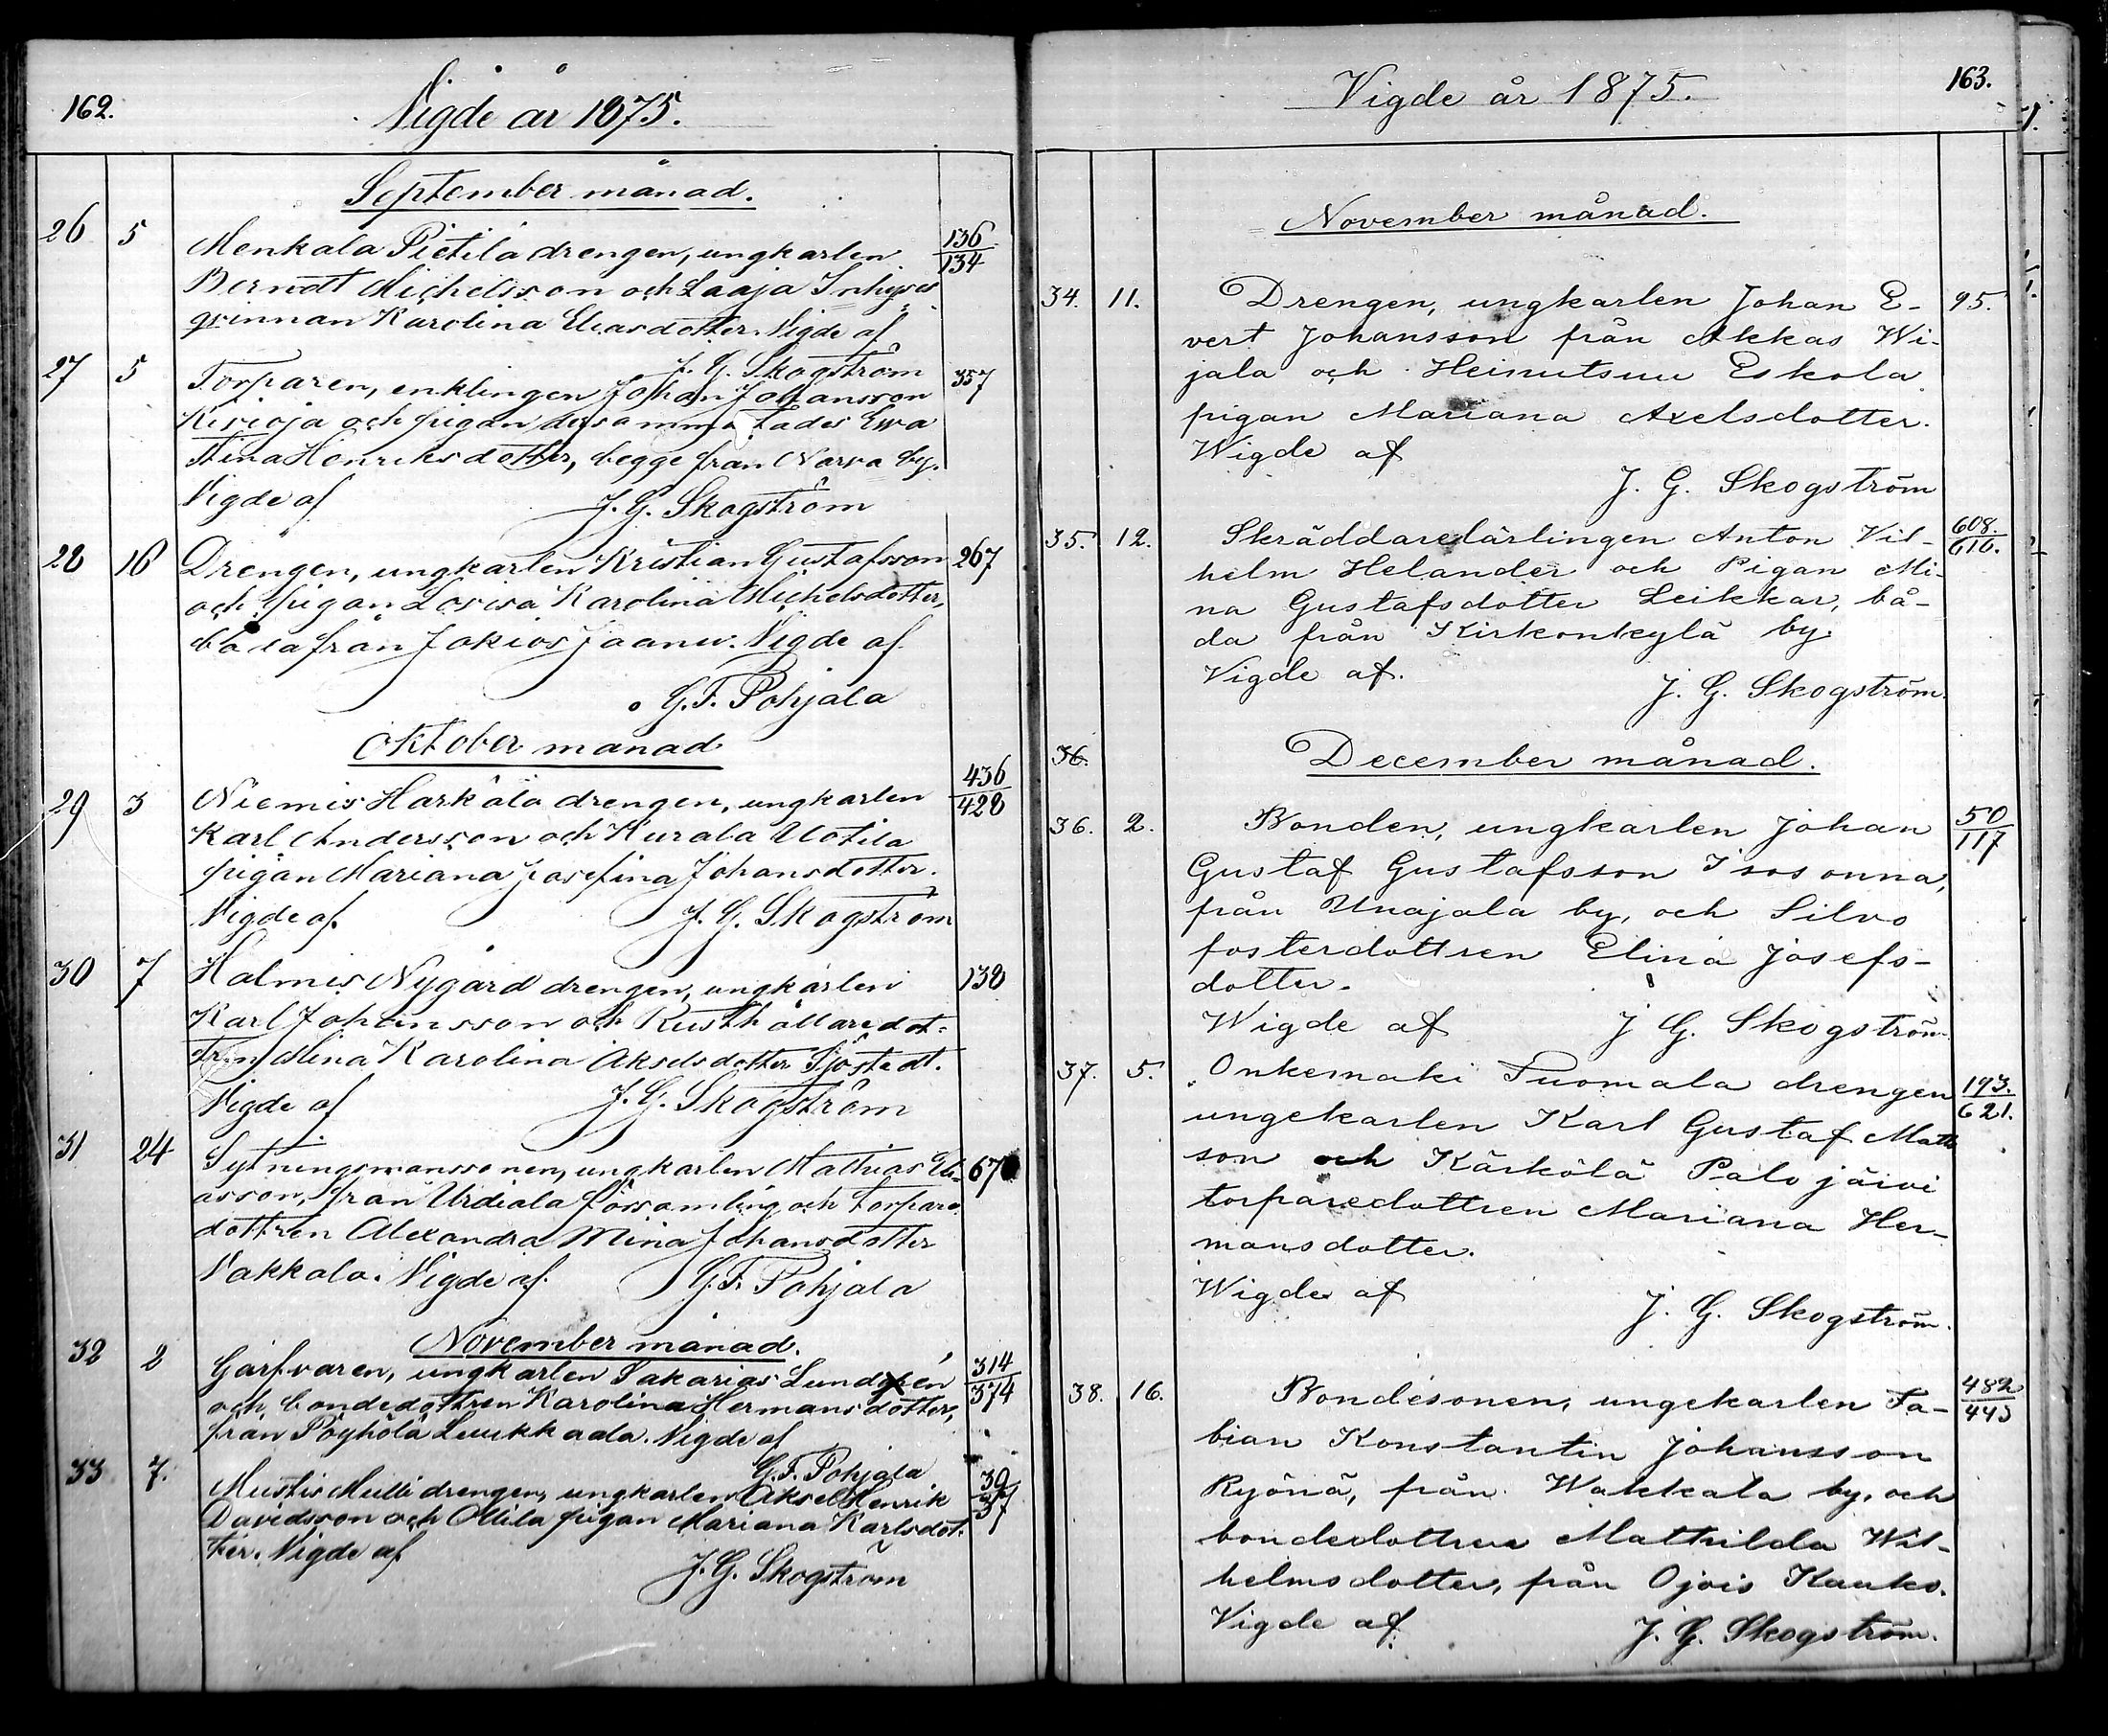 162.
Vigde år 1875.
September månad.
26 5 Menkala Pietilä drengen, ungkarlen 136/134
Berndt Michelsson och Laaja Inhyses
qvinnan Karolina Eliasdotter. Vigde af
J. G. Skogström
27 5 Torparen, enklingen Johan Johansson 357
Kivioja och pigan dersammastädes Ewa
Stina Henriksdotter, begge från Narva by.
Vigde af J. G. Skogström
28 16 Drengen, ungkarlen Kristian Gustafsson 267
och pigan Lovisa Karolina Michelsdotter,
båda från Jokiois Jaanu. Vigde af
G. F. Pohjala
Oktober månad
29 3 Niemis Harkälä drengen, ungkarlen 436/428
Karl Andersson och Kurala Uotila
pigan Mariana Josefina Johansdotter.
Vigde af. J. G. Skogström
30 7 Halmis Nygård drengen, ungkarlen 138
Karl Johansson och Rusthållaredot-
tren Mina Karolina Akselsdotter Sjöstedt.
Vigde af J. G. Skogström
31 24 Sytningsmanssonen, ungkarlen Mathias Eli- 67
asson, från Urdiala församling och torpare
dottren Alexandra Mina Johansdotter
Vakkala. Vigde af. G. F. Pohjala
November månad.
32 2 Garfvaren, ungkarlen Sakarias Lundgrén 314/374
och bondedottren Karolina Hermansdotter,
från Pöyhölä Leuikkaala. Vigde af
G. F. Pohjala
33 7. Mustis Mulli drengen, ungkarlen Aksel Henrik 39/37
Davidsson och Ollila pigan Mariana Karlsdot-
ter. Vigde af
J. G. Skogström
163.
Vigde år 1875.
November månad.
34. 11. Drengen, ungkarlen Johan E- 95.
vert Johansson från Akkas Wi-
jala och Heinutsuu Eskola
pigan Mariana Axelsdotter.
Wigde af
J. G. Skogström
35. 12. Skräddarelärlingen Anton Vil- 608./616.
helm Helander och Pigan Mi-
na Gustafsdotter Leikkar, bå-
da från Kirkonkylä by.
Vigde af.
J. G. Skogström.
36. December månad.
36. 2. Bonden, ungkarlen Johan 50/117
Gustaf Gustafsson Isosonna,
från Unajala by, och Silvo
fosterdottren Elina Josefs-
dotter.
Wigde af J G. Skogström
37. 5. Onkemäki Tuomala drengen 193./621.
ungekarlen Karl Gustaf Mats
son och Kärkölä Palojärvi
torparedottren Mariana Her-
mansdotter.
Wigde af
J. G. Skogström.
38. 16. Bondesonen, ungekarlen Fa- 482/445
bian Konstantin Johansson
Ryönä, från Wakkala by, och
bondedottren Mathilda Wil-
helmsdotter, från Ojois Kauko.
Vigde af J. G. Skogström.